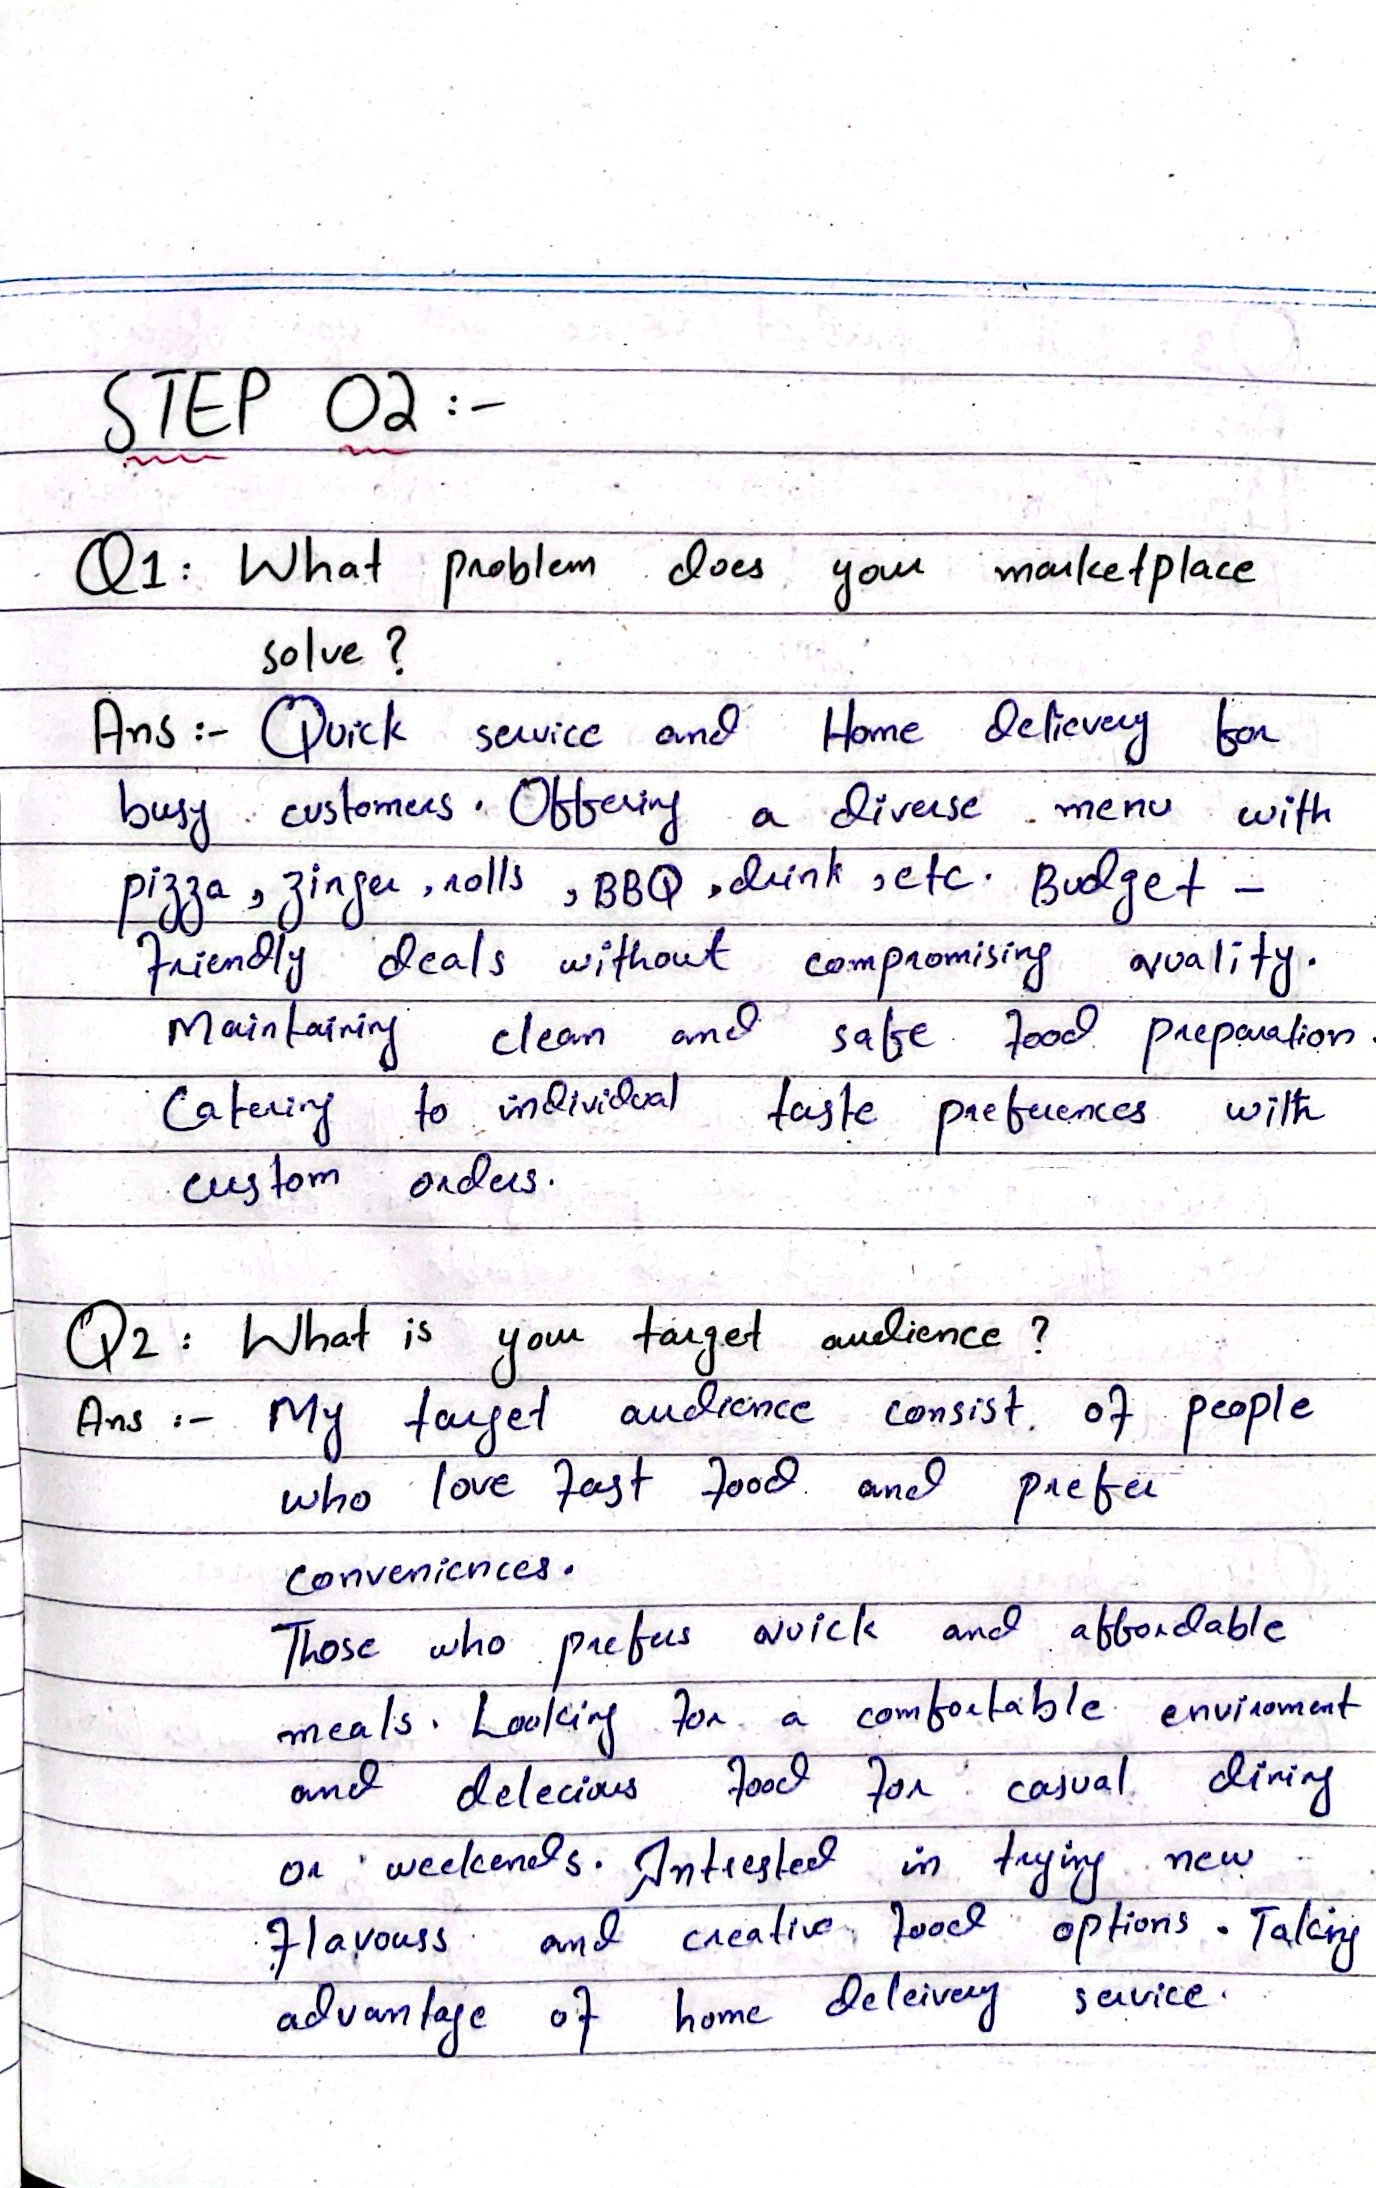 STEP 02 :-
Q1: What problem does your marketplace
solve ?
Ans :- Quick service and Home delievery for
busy customers. Offering a diverse menu with
pizza, zinger, rolls, BBQ, drink, etc. Budget -
friendly deals without compromising quality.
Maintaining clean and safe food preparation.
Catering to individual taste preferences with
custom orders.
Q2: What is your target audience ?
Ans :- My target audience consist of people
who love fast food and prefer
conveniences.
Those who prefers quick and affordable
meals. Looking for a comfortable enviroment
and delecious food for casual dining
or weekends. Intrested in trying new
flavourss and creative food options. Taking
advantage of home deleivery service.